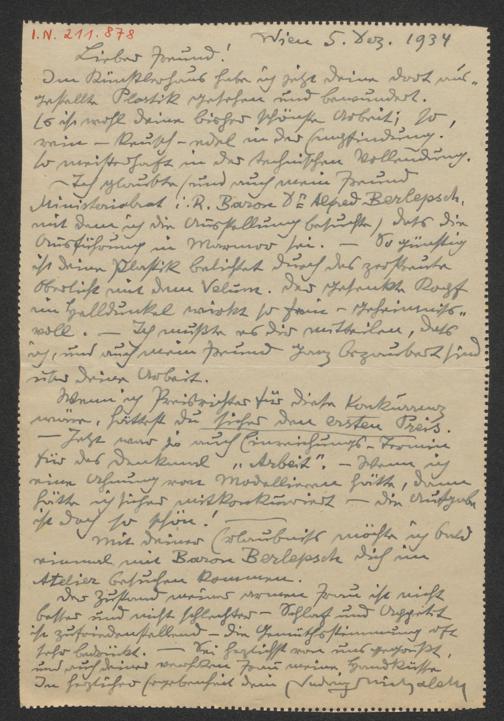 I.N. 211.878
Wien 5. Dez. 1934
Lieber Freund!
Im Künstlerhaus habe ich jetzt deine dort aus-
gestellte Plastik gesehen und bewundert.
Es ist wohl deine bisher schönste Arbeit; so,
rein – keusch – edel in der Empfindung.
so meisterhaft in der technischen Vollendung.
– Ich glaubte (und auch mein Freund
Ministerialrat i. R. Baron Dr Alfred Berlepsch,
mit dem ich die Ausstellung besuchte) dass die
Ausführung in Marmor sei. – So günstig
ist deine Plastik belichtet durch das zerstreute
Oberlicht mit dem Velum. Der gesenkte Kopf
im Helldunkel wirkt so fein – geheimnis-
voll. – Ich musste es dir mitteilen, dass
ich, und auch mein Freund ganz bezaubert sind
über deine Arbeit.
Wenn ich Preisrichter für diese Konkurrenz
wäre, hättest du sicher den ersten Preis.
– Jetzt war ja auch Einreichungs-Termin
für das Denkmal „Arbeit". – Wenn ich
eine Ahnung vom Modellieren hätte, dann
hätte ich sicher mitkonkurriert – die Aufgabe
ist doch so schön!
Mit deiner Erlaubnis möchte ich bald
einmal mit Baron Berlepsch dich im
Atelier besuchen kommen.
Der Zustand meiner armen Frau ist nicht
besser und nicht schlechter – Schlaf und Appetit
ist zufriedenstellend – die Gemütsstimmung oft
sehr bedrückt. – Sei herzlichst von uns gegrüßt,
und auch deiner verehrten Frau meine Handküsse
In herzlicher Ergebenheit dein Ludwig